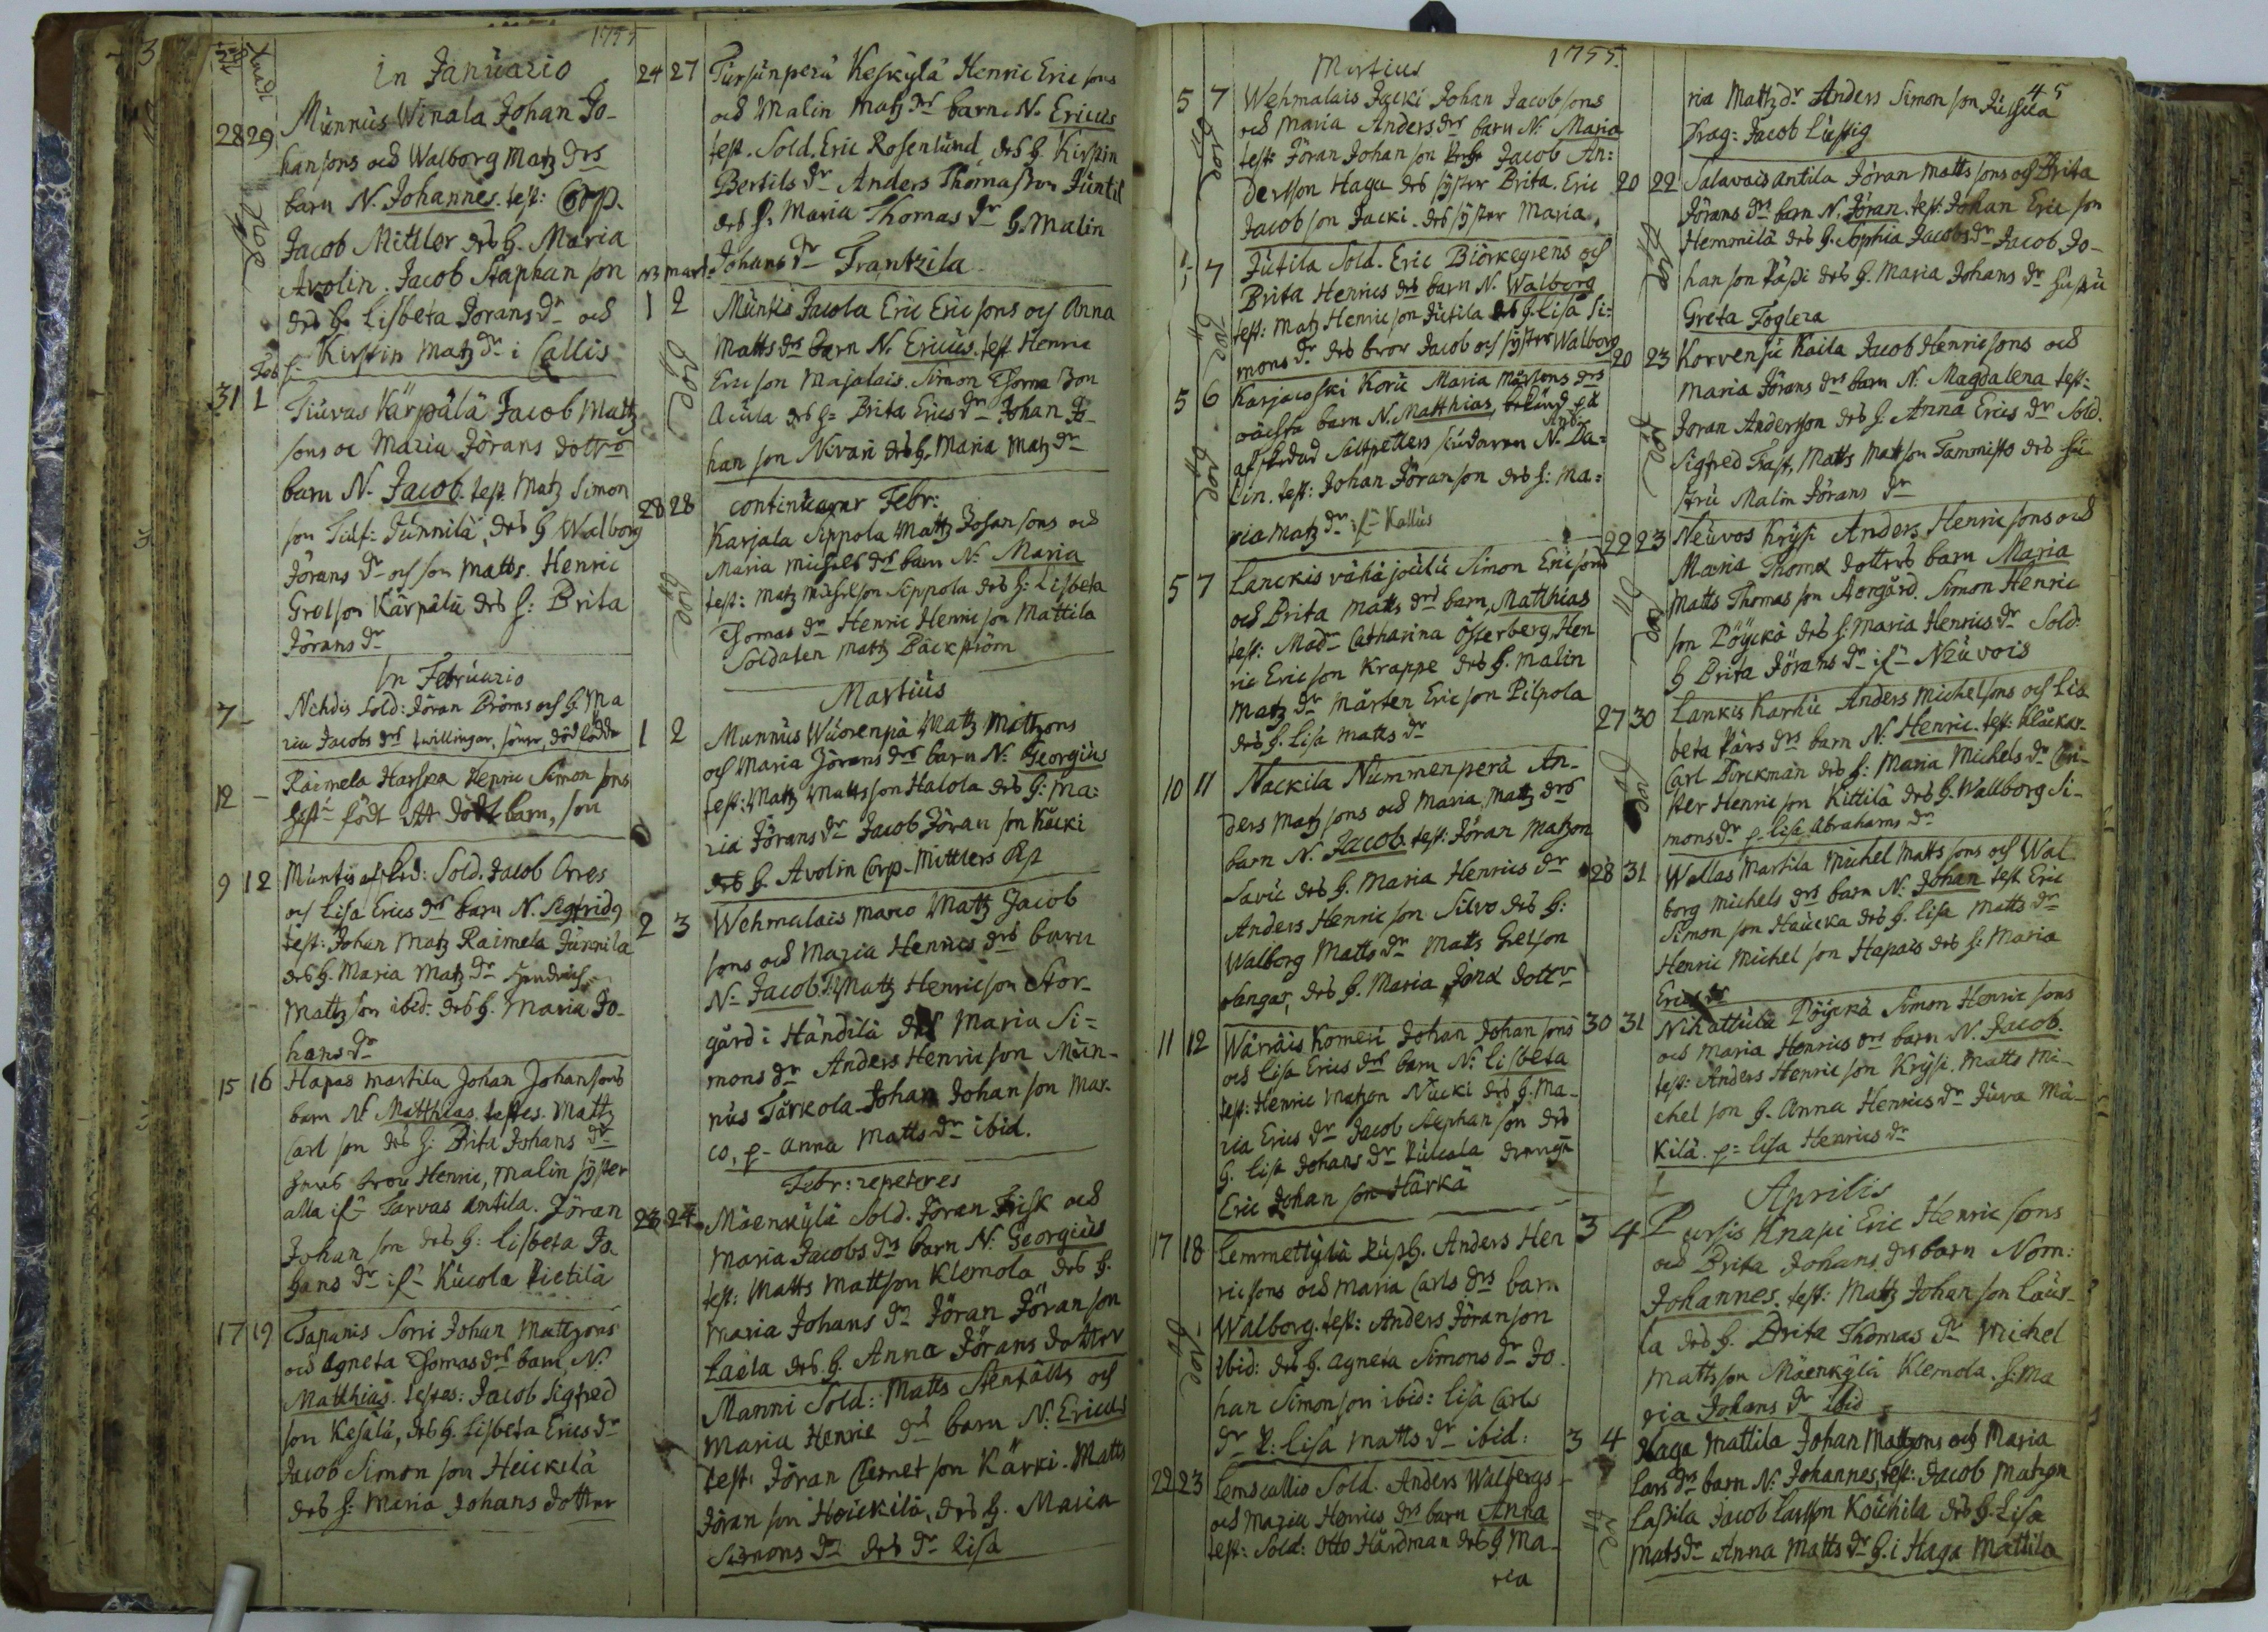 1755
In Januario
28 29 Munnus Winala Johan Jo-
hansons och Walborg Matz drs
barn N. Johannes. test: Corp.
Jacob Mittler des h. Maria
Avolin. Jacob Staphan son
des h. Lisbeta Jorans dr och
Kirstin Matz dr i Callis
Feb
31 1 Tiuvas Kärpälä Jacob Mattz
sons oc Maria Jörans dotvo
barn N. Jacob. test. Matz Simon
son Junnilä, des h Walborg
Jörans dr och son Matts. Henric
Grelson Kärpälä des h: Brita
Jörans dr
In Februario
7 - Nihdis Sold: Jöran Bröms och h. Ma
ria Jacobs drs twillingar, söner, dödfödde
12 - Raimela Harska Henric Simon sons
födt ett dödt barn, son
9 12 Muntis Sold. Jacob Orres
och Lisa Erics drs barn N. Sigfridg
test: Johan Matz Raimela Junnila
des h. Maria Matz dr Hendrich
Mattzson ibid: des h. Maria Jo-
hans dr
15 16 Hapas Martila Johan Johansons
barn N. Matthias testes. Mattz
Carl son des h: Brita Johans dr
bror Henric, Malin syster
alla if- Tarvas Antila. Jöran
Johan son des h: Lisbeta Jo-
hans dr if- Kucola Pietilä
17 19 Tapanis Sorri Johan Mattzons
och Agneta Thomas drs barn N.
Matthias. testes: Jacob Sigfred
son Kesälä, des h. Lisbeta Erics dr
Jacob Simon son Heickilä
des h: Maria Johans dotter
24 27 Tursunperä Keskylä Henric Eric sons
och Malin Matz drs barn N. Ericus
test. Sold. Eric Rosenlund, des h. Kirstin
Bertils dr Anders Thomasson Juntil
des h. Maria Thomas dr h. Malin
Johans dr Frantzila
mart.
1 2 Muntis Jacola Eric Eric sons och Anna
Matts drs barn N. Ericus. test Henric
Eric son Majalais. Simon Thoma zon
Acula des h= Brita Erics dr Johan Jo-
han son Nivari des h. Maria Matz dr
28 28 continuatur Febr:
Karjala Sippola Mattz Johan sons och
Maria Michels drs barn N. Maria
test: Matz Michelson Sippola des h: Lisbeta
Thomas dr Henric Henric son Mattila
Soldaten Mattz Bäckström
Martius
1 2 Munnus Wuorenpä Matz Mattzons
och Maria Jörans drs barn N: Georgius
test: Matz Mattsson Halola des h: Ma:
ria Jörans dr Jacob Jöran son Käcki
des h. Avolin Corp. Mittlers
2 3 Wehmalais Marco Matz Jacob
sons och Maria Henrics drs barn
N. Jacob T: Matz Henricson Stor-
gård i Händilä des Maria Si=
mons dr Anders Henricson Mun-
nus Tärkola. Johan Johan son Mar-
co, p- Anna Matts dr ibid.
Febr: repeteres
23 24 Mäenkylä Sold. Jöran Frisk och
Maria Jacobs drs barn N. Georgius
test: Matts Mattson Klemola, des h.
Maria Johans dr Jöran Jöranson
Laela des h. Anna Jörans dotter
Manni Sold: Matts Stenfälts och
Maria Henric drs barn N: Ericus
test: Jöran Clemet son Kärki. Matts
Jöran son Heickilä, des h. Maria
Simons dr des dr Lisa
Martius 1755.
5 7 Wehmalais Jacki Johan Jacob sons
och Maria Anders drs barn N: Maria
test: Jöran Johan son Jacob An:
dersson Haga des syster Brita. Eric
Jacob son Jacki. des syster Maria.
7 Jutila Sold. Eric Biörkegrens och
Brita Henrics drs barn N. Walborg
test: Matz Henric son Jutila des h. Lisa Si:
mons dr des bror Jacob och syster Walborg
5 6 Karjacoski Koru Maria Mårtens drs
oächta barn N. Matthias,
Saltpetters N. Da=
lin. test: Johan Jöranson des h: Ma=
ria Matz dr if- Kallus
5 7 Lanckis vähäjoulu Simon Ericsons
och Brita Matts drs barn, Matthias
test: Mad- Catharina Österberg, Hen
ric Ericson Krappe des h. Malin
Matz dr Mårten Eric son Pilpola
des h. Lisa Matts dr
10 11 Nackila Nummenperä An-
ders Matz sons och Maria, Mattz drs
barn N. Jacob test: Jöran Matzon
Savic des h. Maria Henrics dr
Anders Henric son Silvo des h:
Walborg Matts dr Matts Grelson
des h. Maria dottr
11 12 Wärräis Komeri Johan Johan sons
och Lisa Erics drs barn N: Lisbeta
test: Henric Matzon Nucki des h. Ma-
ria Erics dr Jacob Stephan son des
h. Lisa Johans dr drengn
Eric Johan son Härkä
17 18 Lemmettylä Anders Hen
ric sons och Maria Carls drs barn
Walborg. test: Anders Jöranson
ibid: des h. Agneta Simons dr Jo-
han Simonson ibid: Lisa Carls
dr P: Lisa Matts dr ibid:
22 23 Lemscallio Sold. Anders Walbergs
och Maria Henrics drs barn Anna
test: Sold: Otto Hårdman des h Ma-
ria
45
ria Mattz dr Anders Simon son Jussila
Drag: Jacob Lustig
20 22 Salavais Antila Jöran Matts sons och Brita
Jörans drs barn N. Jöran. test. Johan Eric son
Hemmilä des h. Sophia Jacobs dr Jacob Jo-
han son Pässi des h. Maria Johans dr hustru
Greta Foglera
20 23 Korvensu Kaila Jacob Henric sons och
Maria Jörans drs barn N: Magdalena test:
Joran Andersson des h: Anna Erics dr Sold.
Sigfred Trast, Matts Matson Tammisto des hu-
stru Malin Jörans dr
22 23 Neuvos Krysi Anders Henric sons och
Maria Thoma dotters barn Maria
Matts Thomas son Aorgård. Simon Henric
son Pöyckä des h. Maria Henrics dr Sold.
h Brita Jörans dr if- Neuvois
27 30 Lankis Karhu Anders Michelsons och Lis
beta Pärs drs barn N: Henric. test: Klåckar.
Carl Birckman des h: Maria Michels dr Cri-
ster Henric son Kittilä des h. Wallborg Si-
mons dr p- Lisa Abrahams dr
28 31 Wallas Martila Michel Matts sons och Wal
borg Michels drs barn N: Johan test Eric
Simon son Haucka des h. Lisa Matts dr
Henric Michel son Hapais des h: Maria
Erics dr
30 31 Nihattula Pöyckä Simon Henric sons
och Maria Henrics drs barn N. Jacob.
test: Anders Henric son Krysi. Matts Mi-
chel son h. Anna Henrics dr Juva Mä-
kilä. p= Lisa Henrics dr
Aprilis
3 4 Pursis Knapi Eric Henric sons
och Brita Johans drs barn Nom:
Johannes. test: Matz Johan son Lau-
la des h. Brita Thomas dr Michel
Mattsson Mäenkylä Klemola. h: Ma
ria Johans dr ibid
3 4 Haga Mattila Johan Mattzons och Maria
Lars drs barn N: Johannes, test: Jacob Matzon
Lassila Jacob Larsson Köickilä des h. Lisa
Mats dr Anna Matts dr h. i Haga Mattila